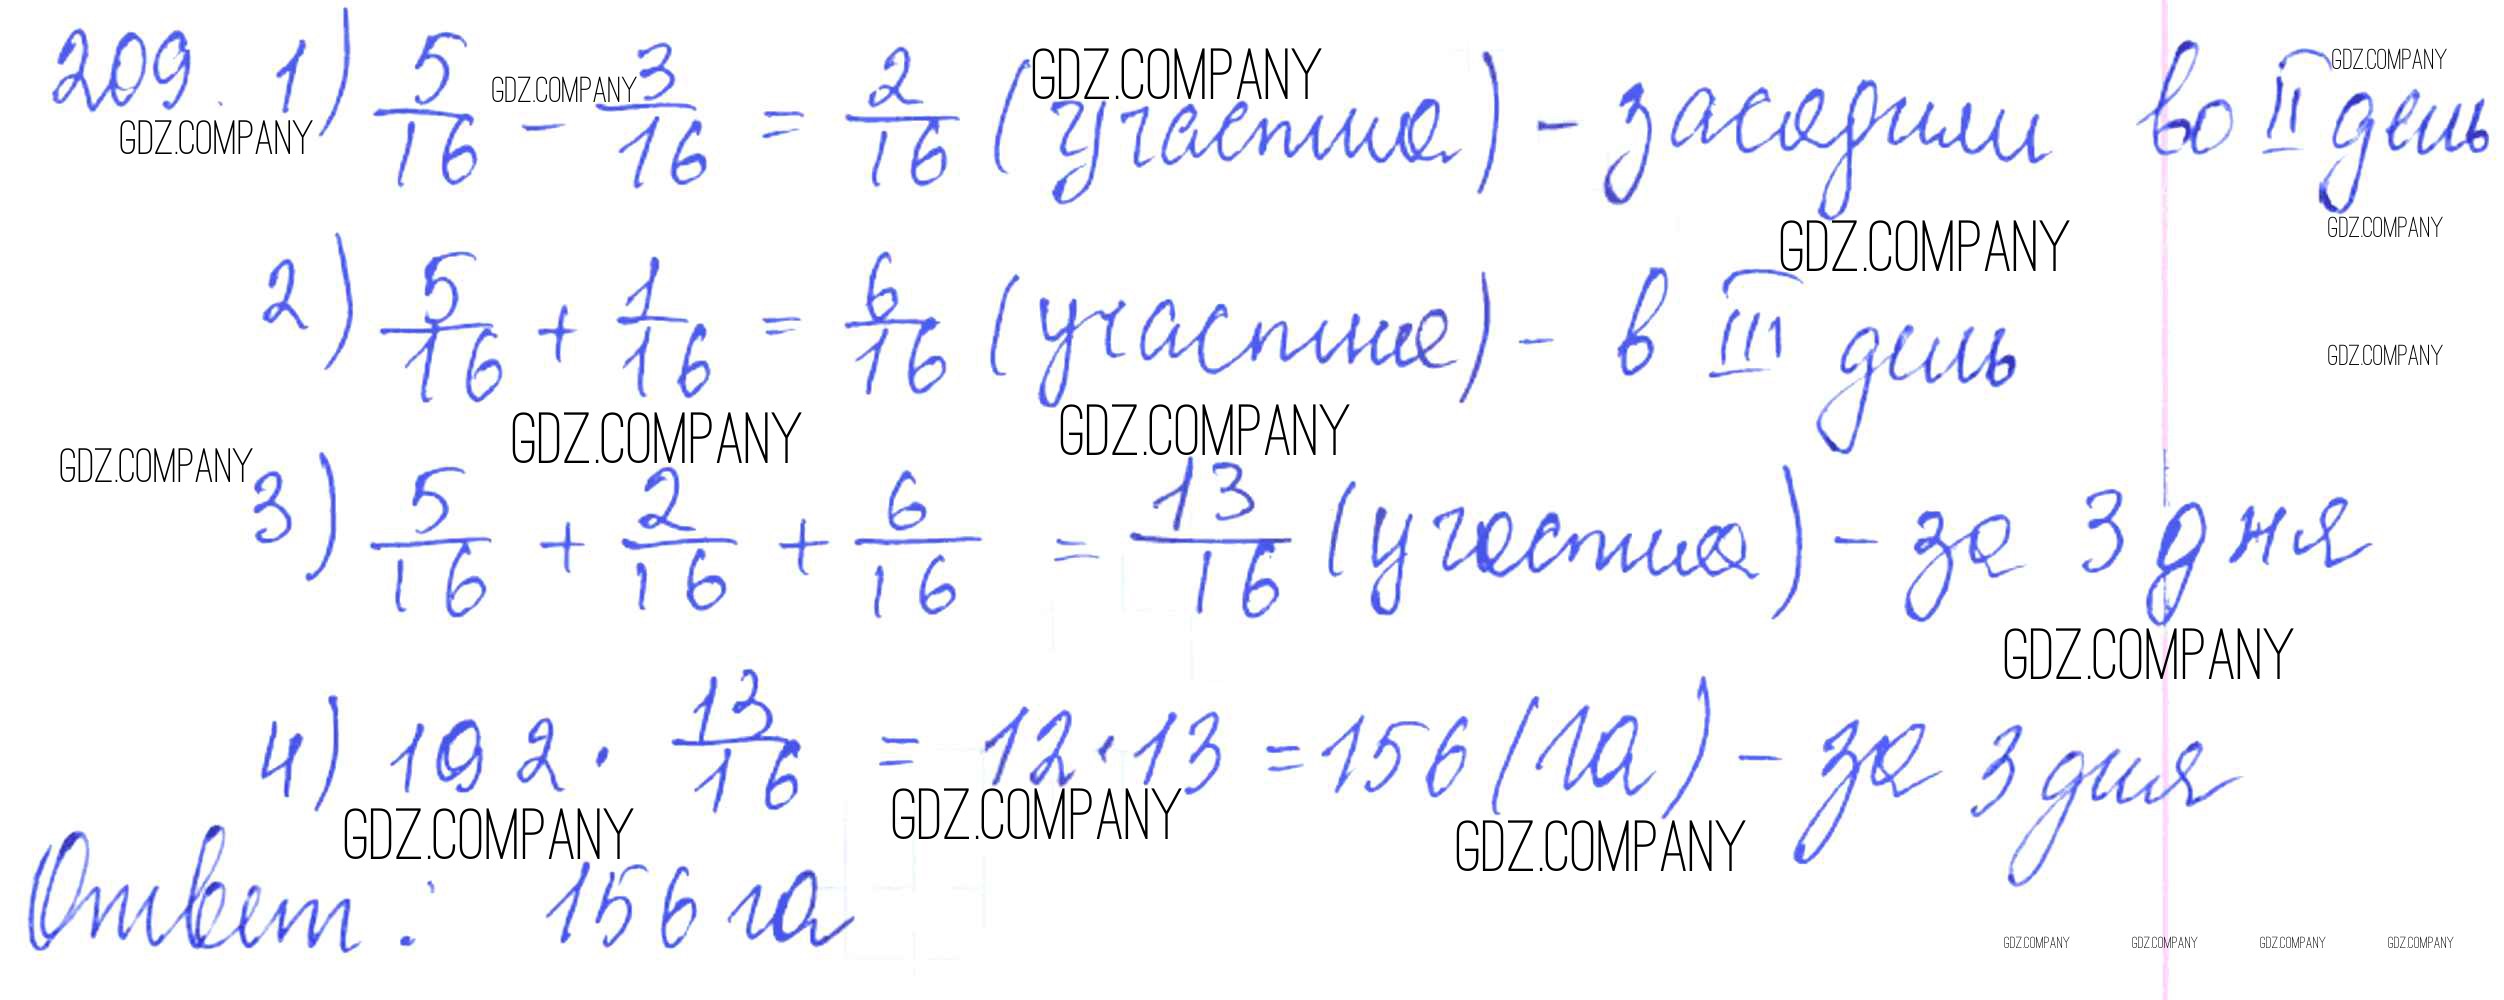 209. 1) 5/16 - 3/16 = 2/16 (участка) - засадили во II день
2) 5/16 + 1/16 = 6/16 (участка) - в III день
3) 5/16 + 2/16 + 6/16 = 13/16 (участка) - за 3 дня
4) 192 · 13/16 = 12 · 13 = 156 (га) - за 3 дня
Ответ: 156 га
GDZ.COMPANY
GDZ.COMPANY
GDZ.COMPANY
GDZ.COMPANY
GDZ.COMPANY
GDZ.COMPANY
GDZ.COMPANY
GDZ.COMPANY
GDZ.COMPANY
GDZ.COMPANY
GDZ.COMPANY
GDZ.COMPANY
GDZ.COMPANY
GDZ.COMPANY
GDZ.COMPANY GDZ.COMPANY GDZ.COMPANY GDZ.COMPANY